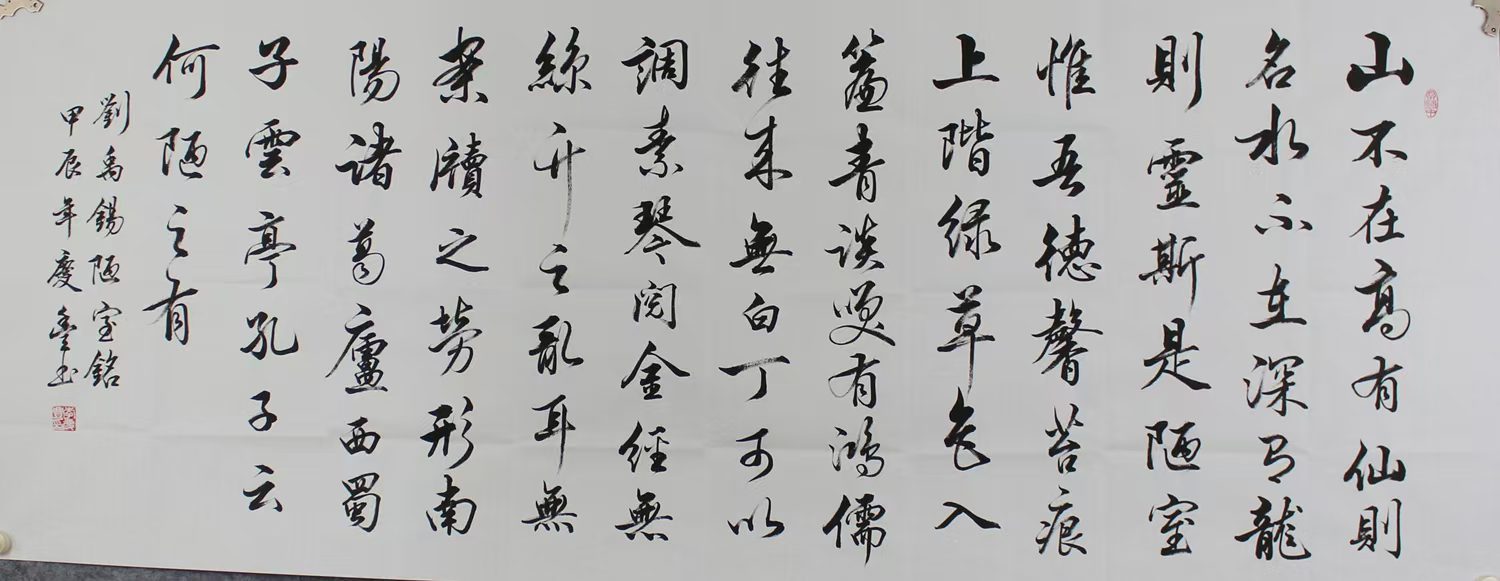 山不在高有仙則
名水不在深有龍
則靈斯是陋室
惟吾德馨苔痕
上階緑草色入
簾青談笑有鴻儒
往来無白丁可以
調素琴閲金經無
絲竹之亂耳無
案牘之勞形南
陽諸葛廬西蜀
子雲亭孔子云
何陋之有
劉禹錫陋室銘
甲辰年慶書